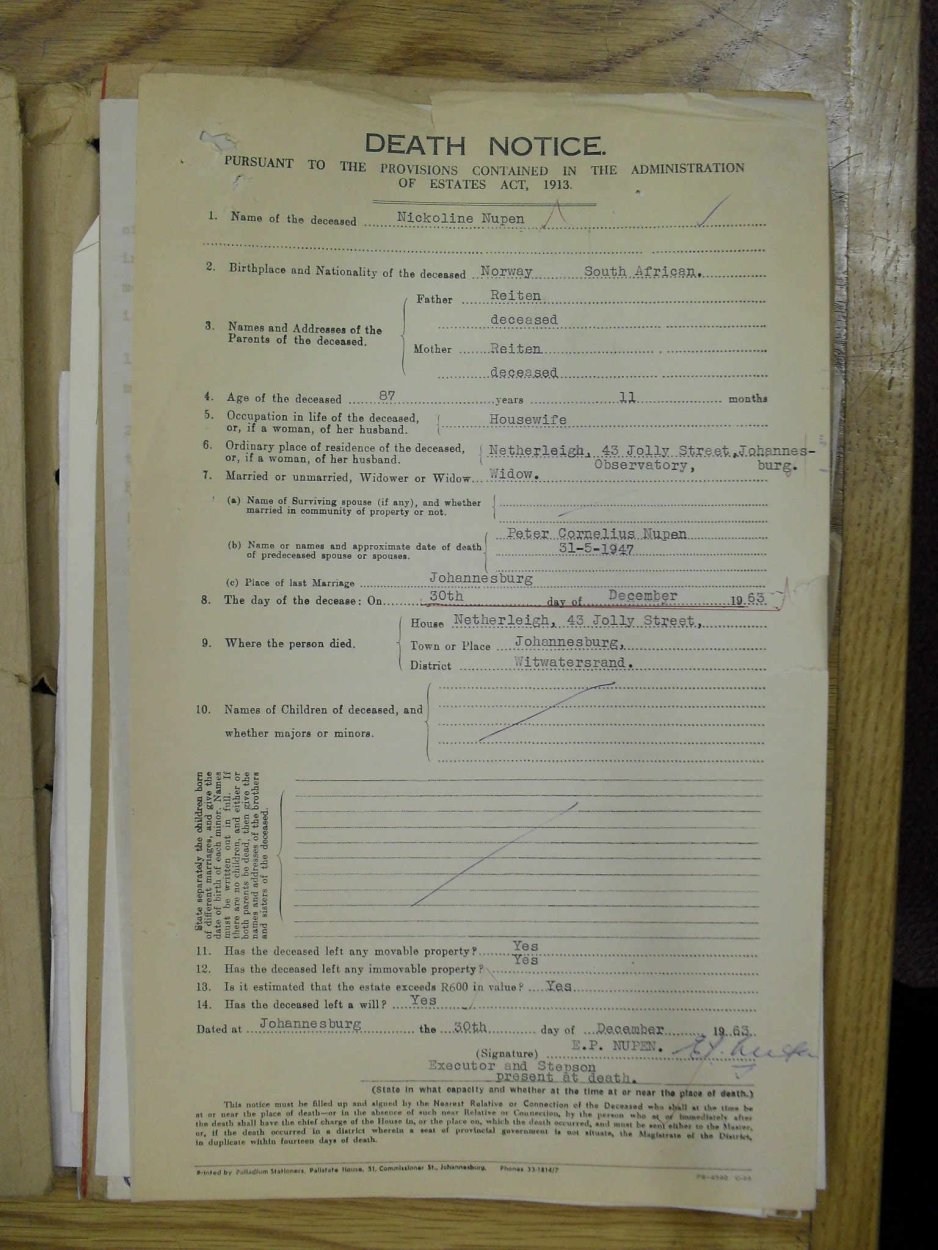 DEATH NOTICE.
PURSUANT TO THE PROVISIONS CONTAINED IN THE ADMINISTRATION
OF ESTATES ACT, 1913.
1. Name of the deceased Nickoline Nupen
2. Birthplace and Nationality of the deceased Norway South African.
3. Names and Addresses of the Parents of the deceased.
Father Reiten
deceased
Mother Reiten
deceased
4. Age of the deceased 87 years 11 months
5. Occupation in life of the deceased, Housewife
or, if a woman, of her husband.
6. Ordinary place of residence of the deceased, Netherleigh, 43 Jolly Street, Johannes-
or, if a woman, of her husband. Observatory, burg.
7. Married or unmarried, Widower or Widow Widow.
(a) Name of Surviving spouse (if any), and whether
married in community of property or not.
Peter Cornelius Nupen
(b) Name or names and approximate date of death 31-5-1947
of predeceased spouse or spouses.
(c) Place of last Marriage Johannesburg
8. The day of the decease: On 30th day of December 1963
9. Where the person died.
House Netherleigh, 43 Jolly Street,
Town or Place Johannesburg,
District Witwatersrand.
10. Names of Children of deceased, and
whether majors or minors.
State separately the children born
of different marriages, and give the
date of birth of each minor. Names
must be written out in full. If
there are no children, and either or
both parents be dead, then give the
names and addresses of the brothers
and sisters of the deceased.
11. Has the deceased left any movable property? Yes
12. Has the deceased left any immovable property? Yes
13. Is it estimated that the estate exceeds R600 in value? Yes
14. Has the deceased left a will? Yes
Dated at Johannesburg the 30th day of December 1963
E.P. NUPEN.
(Signature)
Executor and Stepson
present at death.
(State in what capacity and whether at the time at or near the place of death.)
This notice must be filled up and signed by the Nearest Relative or Connection of the Deceased who shall at the time be
at or near the place of death—or in the absence of such near Relative or Connection, by the person who at or immediately after
the death shall have the chief charge of the House in, or the place on, which the death occurred, and must be sent either to the Master,
or, if the death occurred in a district wherein a seat of provincial government is not situate, the Magistrate of the District,
in duplicate within fourteen days of death.
Printed by Palladium Stationers, Pallstate House, 51, Commissioner St., Johannesburg. Phones 33-1814/7